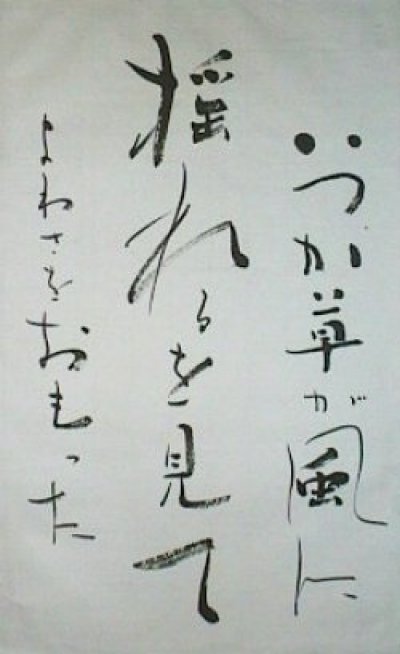 いつか草が風に
揺れるを見て
よわさをおもった